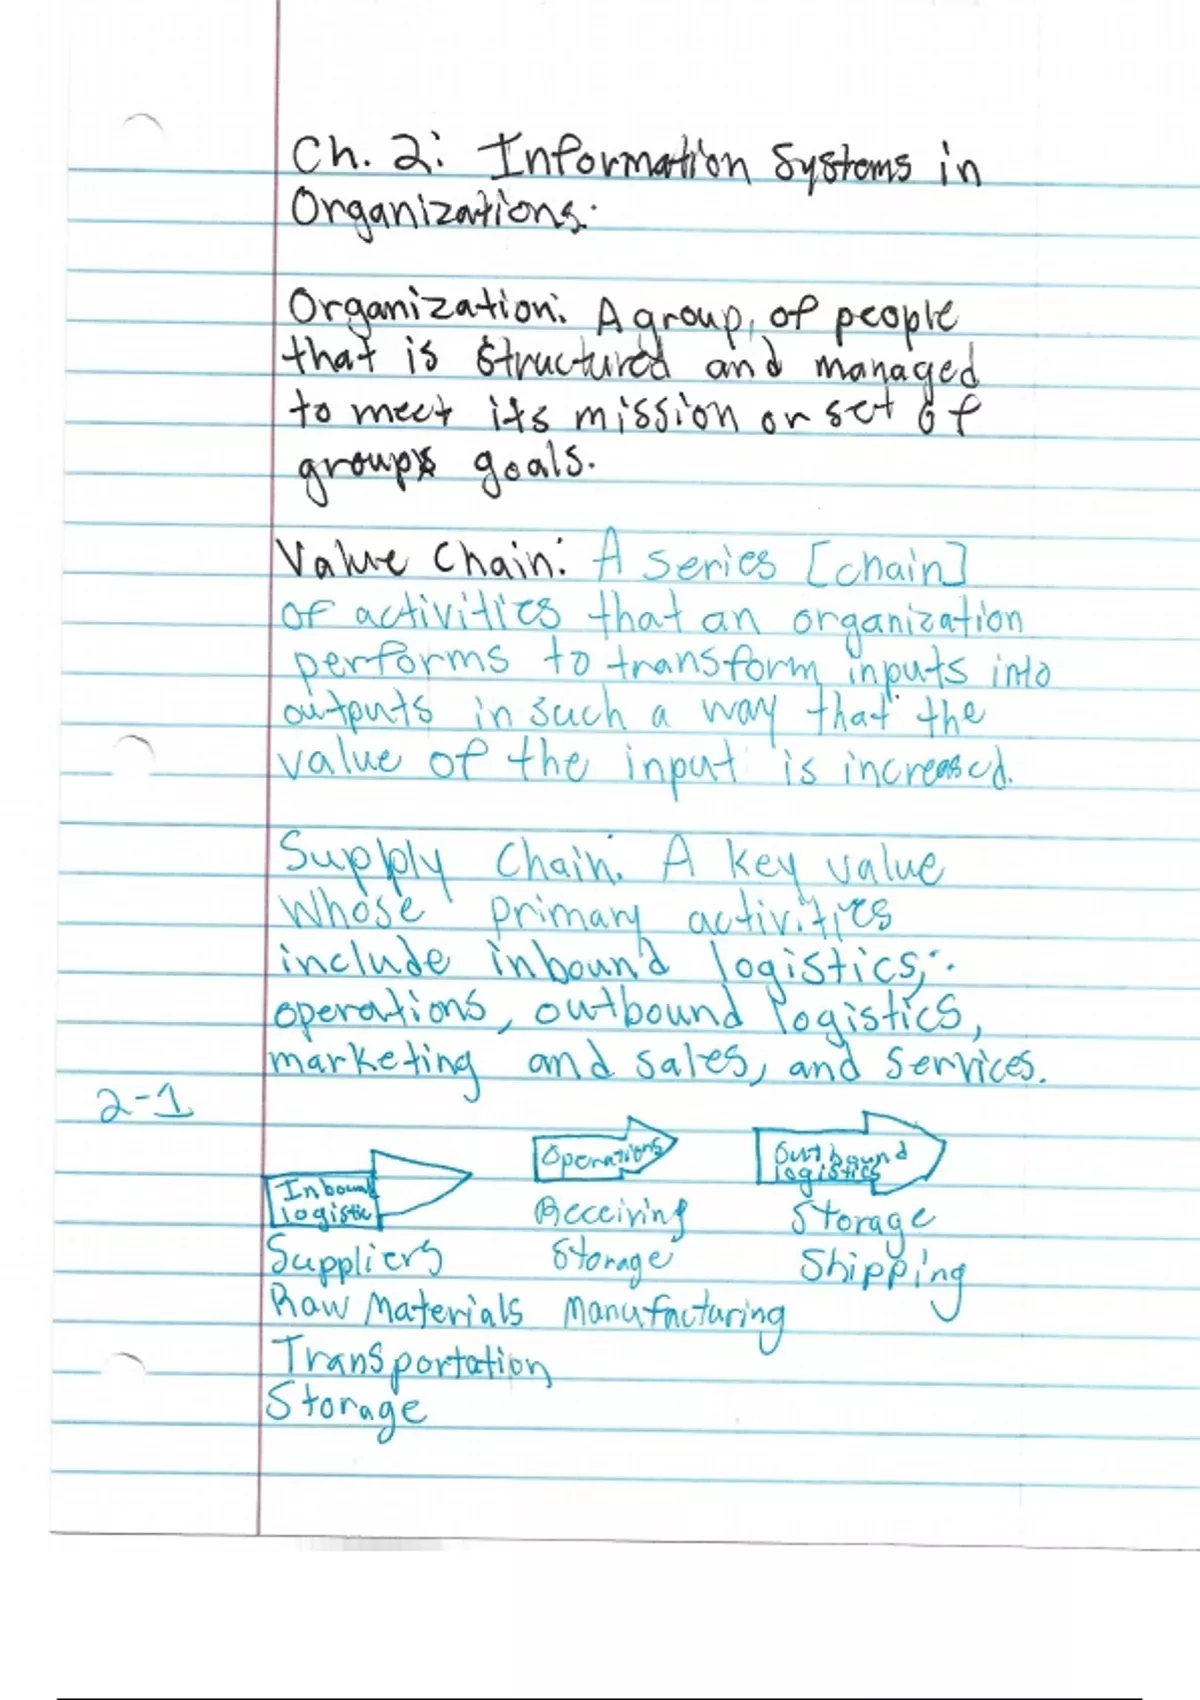 Ch. 2: Information Systems in
Organizations.
Organization: A group, of people
that is structured and managed
to meet its mission or set of
groups goals.
Value Chain: A series [chain]
of activities that an organization
performs to transform inputs into
outputs in such a way that the
value of the input is increased.
Supply Chain: A key value
whose primary activities
include inbound logistics,
operations, outbound logistics,
marketing and sales, and services.
2-1
Inbound
logistic
Operations
Outbound
logistics
Suppliers
Raw Materials
Transportation
Storage
Receiving
Storage
Manufacturing
Storage
Shipping